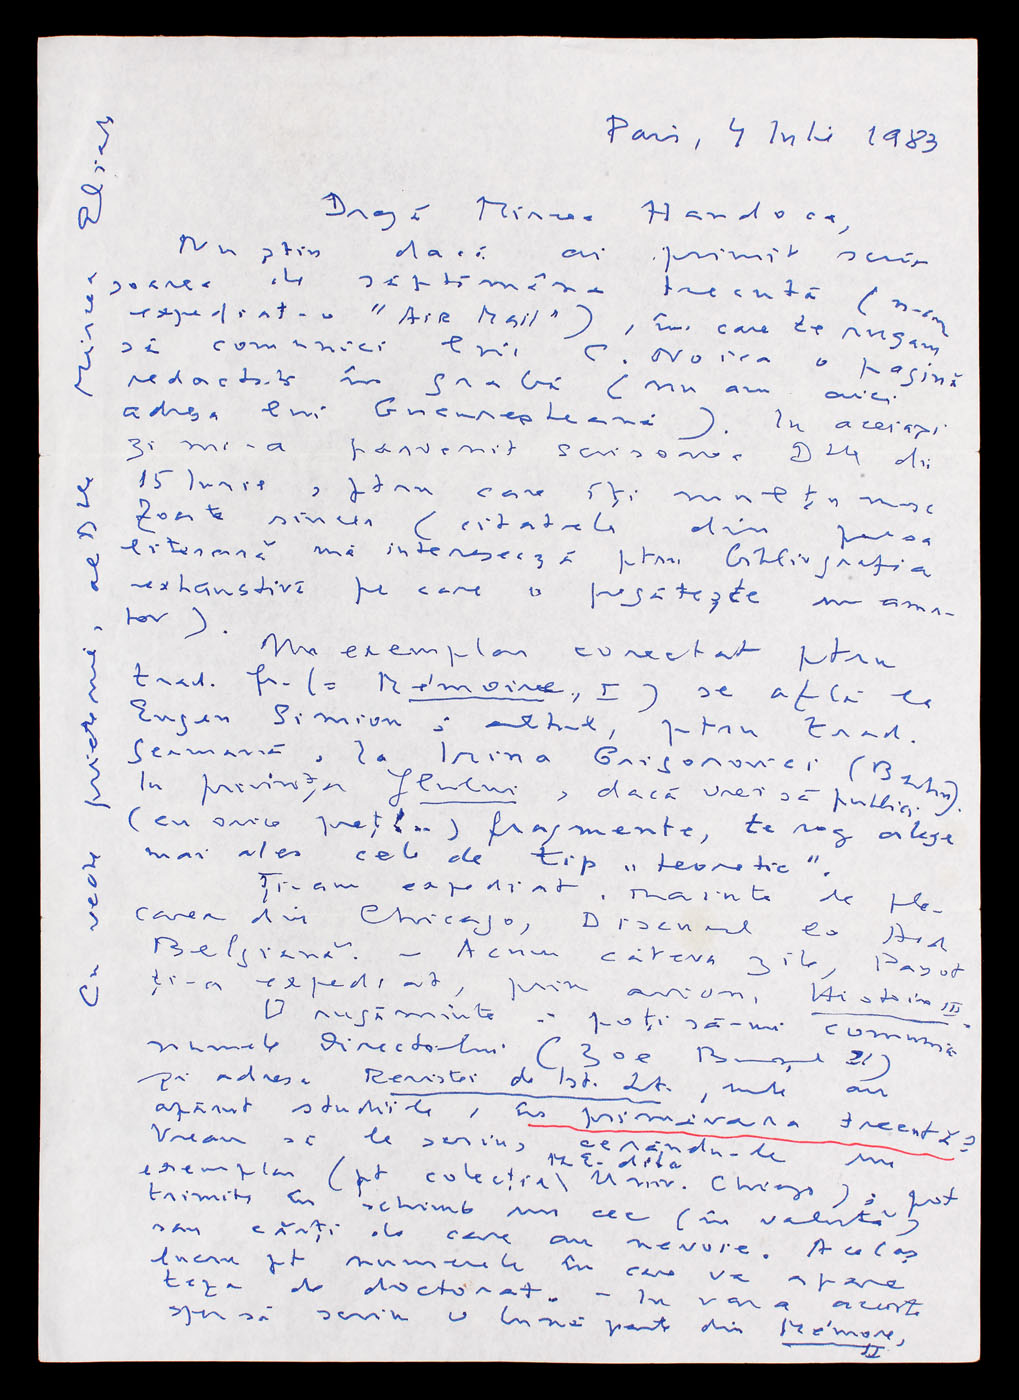 Paris, 4 Iulie 1983
Dragă Mircea Handoca,
Nu știu dacă ai primit scri-
soarea de săptămâna trecută (n-am
expediat-o "Air Mail"), în care te rugam
să comunici lui C. Noica o pagină
redactată în grabă (nu am aici
adresa lui bucureșteană). In aceiași
zi mi-a parvenit scrisoarea Dtle din
15 Iunie, ptru care îți mulțumesc
foarte sincer (citatele din presa
literară mă interesează ptru bibliografia
exhaustivă pe care o pregătește un ama-
tor).
Un exemplar corectat ptru
trad. fr. (= Mémoire, I) se află la
Eugen Simion; altul, ptru trad.
germană, la Irina Grigorovici (Berlin).
In privința Jlului, dacă vrei să publici
(cu orice preț!..) fragmente, te rog alege
mai ales cele de tip „teoretic".
Ți-am expediat, înainte de ple-
carea din Chicago, Discursul la Acad
Belgiană. – Acum câteva zile, Payot
ți-a expediat, prin avion, Histoire III.
O rugăminte: poți să-mi comunici
numele Directorului (Zoe
și adresa Revistei de Ist. Lit., unde au
apărut studiile, în primăvara trecută?
Vreau să le scriu, cerându-le un
exemplar (pt colecția M.E. dela Univ. Chicago); pot
trimite în schimb un cec (în valută)
sau cărți de care au nevoie. Acelaș
lucru pt numerele în care va apare
teza de doctorat. – In vara aceasta
sper să scriu o bună parte din Mémoire,
II
Cu veche prietenie, al Dtle Mircea Eliade